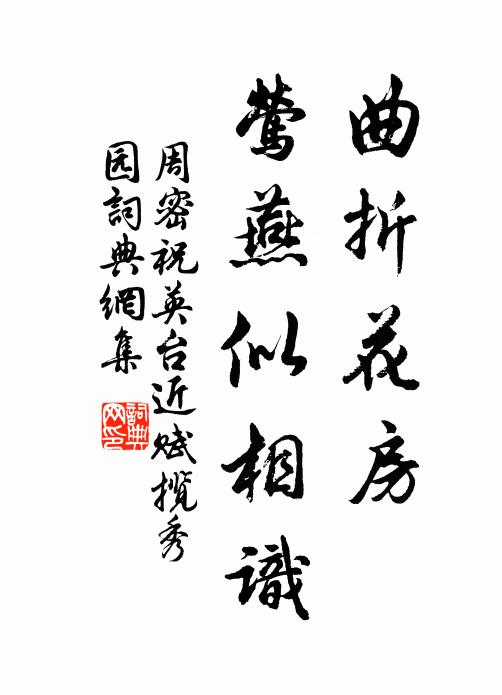 曲折花房
莺燕似相識
周密祝英台近赋揽秀
园詞典網集
詞典
网印